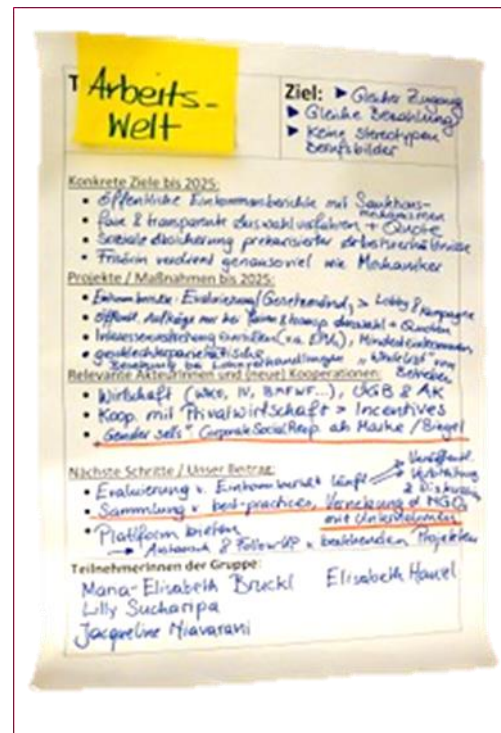 T
Arbeits-
Welt
Ziel: ▶ Gleicher Zugang
▶ Gleiche Bezahlung
▶ Keine stereotypen
Berufsbilder
Konkrete Ziele bis 2025:
• öffentliche Einkommensberichte mit Sanktions-
mechanismen
• faire & transparente Auswahlverfahren + Quote
• Soziale Absicherung prekarisierter Arbeitsverhältnisse
• Frisörin verdient genausoviel wie Mechaniker
Projekte / Maßnahmen bis 2025:
• Evaluierung/ > Lobby & Kampagne
• öffentl. Aufträge nur bei + Quoten
• Mindesteinkommen
• geschlechterparitätische
Besetzung bei "Whitelist" von
Betrieben
Relevante AkteurInnen und (neue) Kooperationen:
• Wirtschaft (WKO, IV, BMFWF...), ÖGB & AK
• Koop. mit Privatwirtschaft > Incentives
• "Gender sells": Corporate Social Resp. als Marke / Siegel
Nächste Schritte / Unser Beitrag:
• Evaluierung v. Einkommensbericht läuft
Veröffentl.
Verbreitung
& Diskussion
• Sammlung v. best-practices, Vernetzung d NGOs
mit Unternehmen
• Plattform bieten
→ Austausch & Follow-UP v. bestehenden Projekten
TeilnehmerInnen der Gruppe:
Maria-Elisabeth Bruckl Elisabeth
Lilly Sucharipa
Jacqueline Niavarani